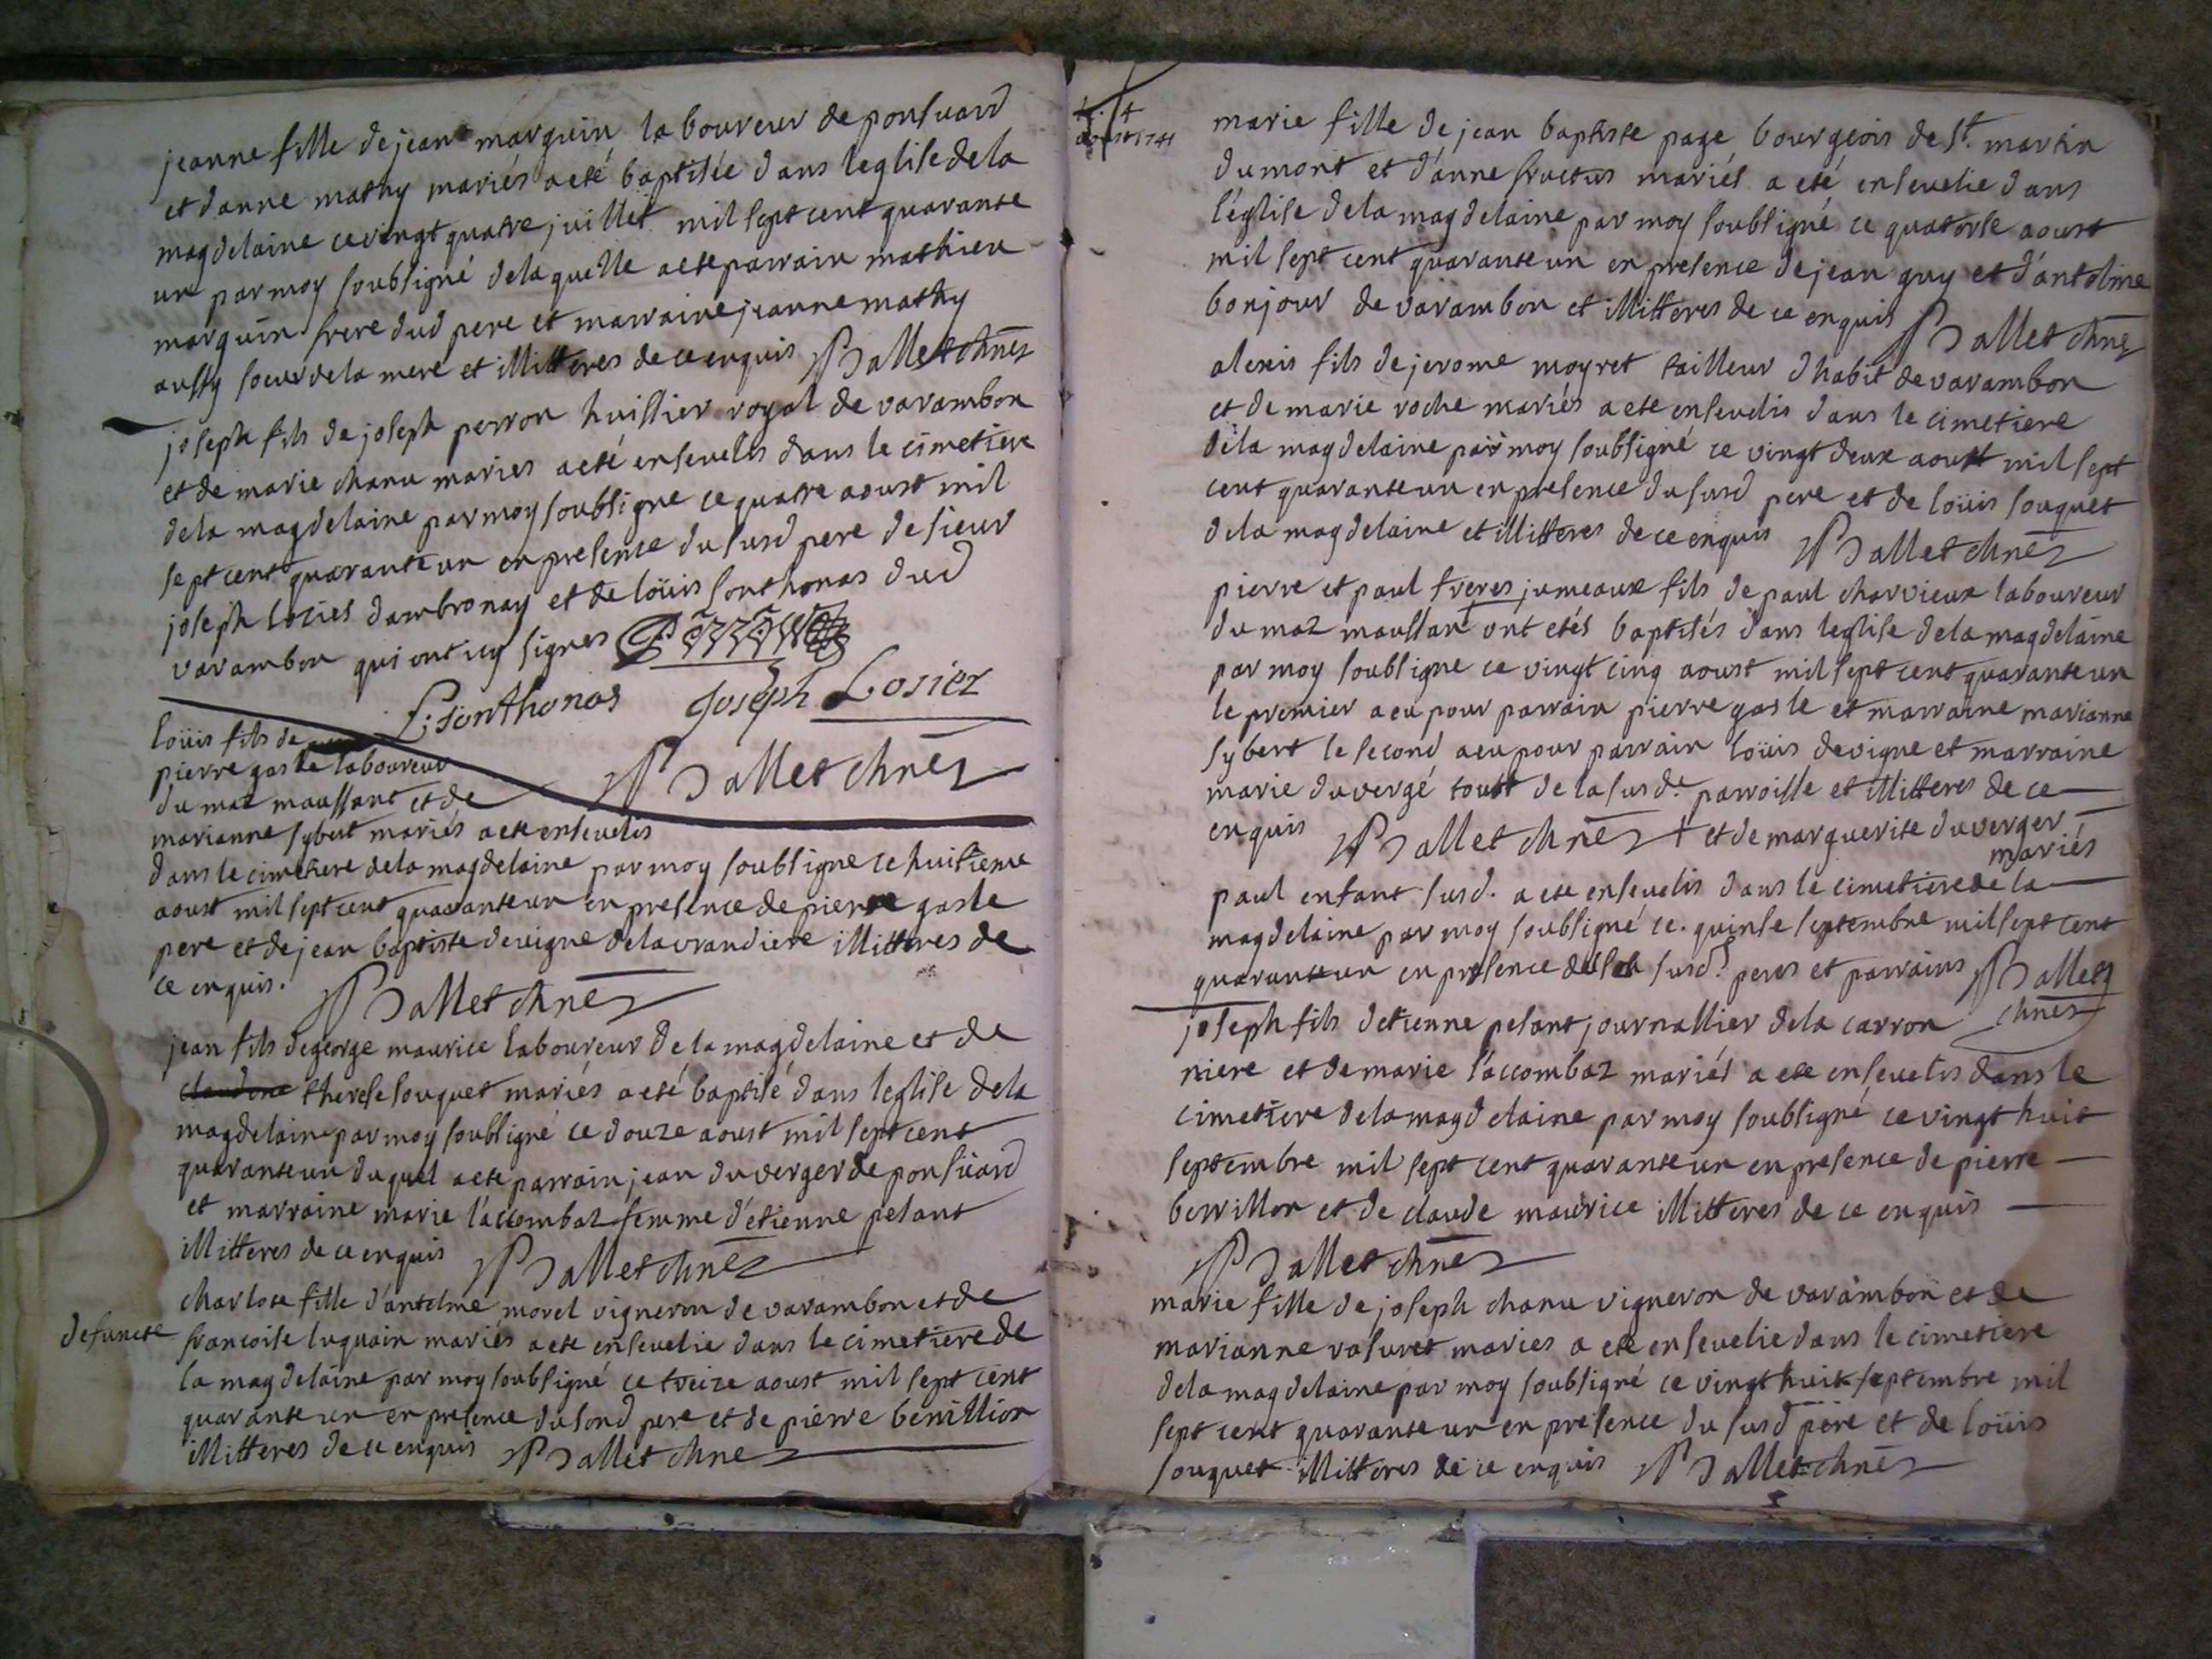 jeanne fille de jean marguin laboureur de ponsuard
et danne mathy mariés a eté baptisée dans leglise de la
magdelaine ce vingt quatre juillet mil sept cent quarante
un par moy soubsigné de laquelle a ete parrain mathieu
marguin frere dud pere et marraine jeanne mathy
aussy soeur de la mere et illitteres de ce enquis Ballet chne
joseph fils de joseph perron huissier royal de varambon
et de marie chanu maries a eté ensevelis dans le cimetiere
de la magdelaine par moy soubsigne ce quatre aoust mil
sept cent quarante un en presence du susd pere de sieur
joseph losier dambronay et de loüis sonthonas dud
varambon qui ont icy signes Perron
L: sonthonas Joseph Losier
Ballet chne
loüis fils de
pierre gaste laboureur
du maz maussant et de
marianne sybert mariés a ete ensevelis
dans le cimetiere de la magdelaine par moy soubsigne ce huitieme
aoust mil sept cent quaranteun en presence de pierre gaste
pere et de jean baptiste devigne de la vrandiere illitteres de
ce enquis. Ballet chne
jean fils de george maurice laboureur de la magdelaine et de
therese souquet mariés a eté baptisé dans leglise de la
magdelaine par moy soubsigné ce douze aoust mil sept cent
quaranteun duquel a ete parrain jean duverger de ponsuard
et marraine marie l'accombaz femme d'etienne pesant
illitteres de ce enquis Ballet chne
charlote fille d'antelme morel vigneron de varambon et de
defuncte francoise luquain mariés a ete ensevelie dans le cimetiere de
la magdelaine par moy soubsigné ce treize aoust mil sept cent
quarante un en presence du susd pere et de pierre berrillion
illitteres de ce enquis Ballet chne
aoust 1741
marie fille de jean baptiste page bourgeois de St. martin
du mont et d'anne fructus mariés a eté ensevelie dans
l'église de la magdelaine par moy soubsigné ce quatorse aoust
mil sept cent quarante un en presence de jean guy et d'antelme
bonjour de varambon et illitteres de ce enquis Ballet chne
alexis fils de jerome moyret tailleur dhabit de varambon
et de marie roche mariés a ete ensevelis dans le cimetiere
de la magdelaine par moy soubsigné ce vingt deux aoust mil sept
cent quaranteun en presence du susd pere et de loüis souquet
de la magdelaine et illitteres de ce enquis Ballet chne
pierre et paul freres jumeaux fils de paul charvieux laboureur
du maz maussant + ont etés baptisés dans leglise de la magdelaine
par moy soubsigne ce vingt cinq aoust mil sept cent quaranteun
le premier a eu pour parrain pierre gaste et marraine marianne
sybert le second a eu pour parrain loüis devigne et marraine
marie duvergé touts de la susde. parroisse et illitteres de ce
enquis Ballet chne + et de marguerite duverger
mariés
paul enfant susd. a ete ensevelis dans le cimetiere de la
magdelaine par moy soubsigné ce quinse septembre mil sept cent
quaranteun en presence des susd. peres et parrains Ballet
chne
joseph fils detienne pesant journallier de la carron
niere et de marie l'accombaz mariés a ete ensevelis dans le
cimetiere de la magdelaine par moy soubsigné ce vingt huit
septembre mil sept cent quarante un en presence de pierre
berrillon et de claude maurice illitteres de ce enquis
Ballet chne
marie fille de joseph chanu vigneron de varambon et de
marianne vasuret maries a ete ensevelie dans le cimetiere
de la magdelaine par moy soubsigné ce vingt huit septembre mil
sept cent quarante un en presence du susd pere et de loüis
souquet illitteres de ce enquis Ballet chne